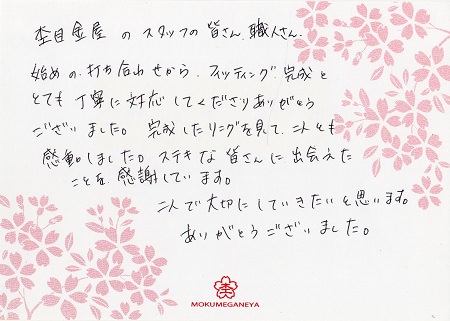 杢目金屋 の スタッフの 皆さん、職人さん、
始めの打ち合わせから、フィッティング、完成と
とても 丁寧に対応してくださりありがとう
ございました。完成したリングを見て、二人とも
感動しました。ステキな 皆さんに出会えた
ことを、感謝しています。
二人で大切にしていきたいと思います。
ありがとうございました。
MOKUMEGANEYA